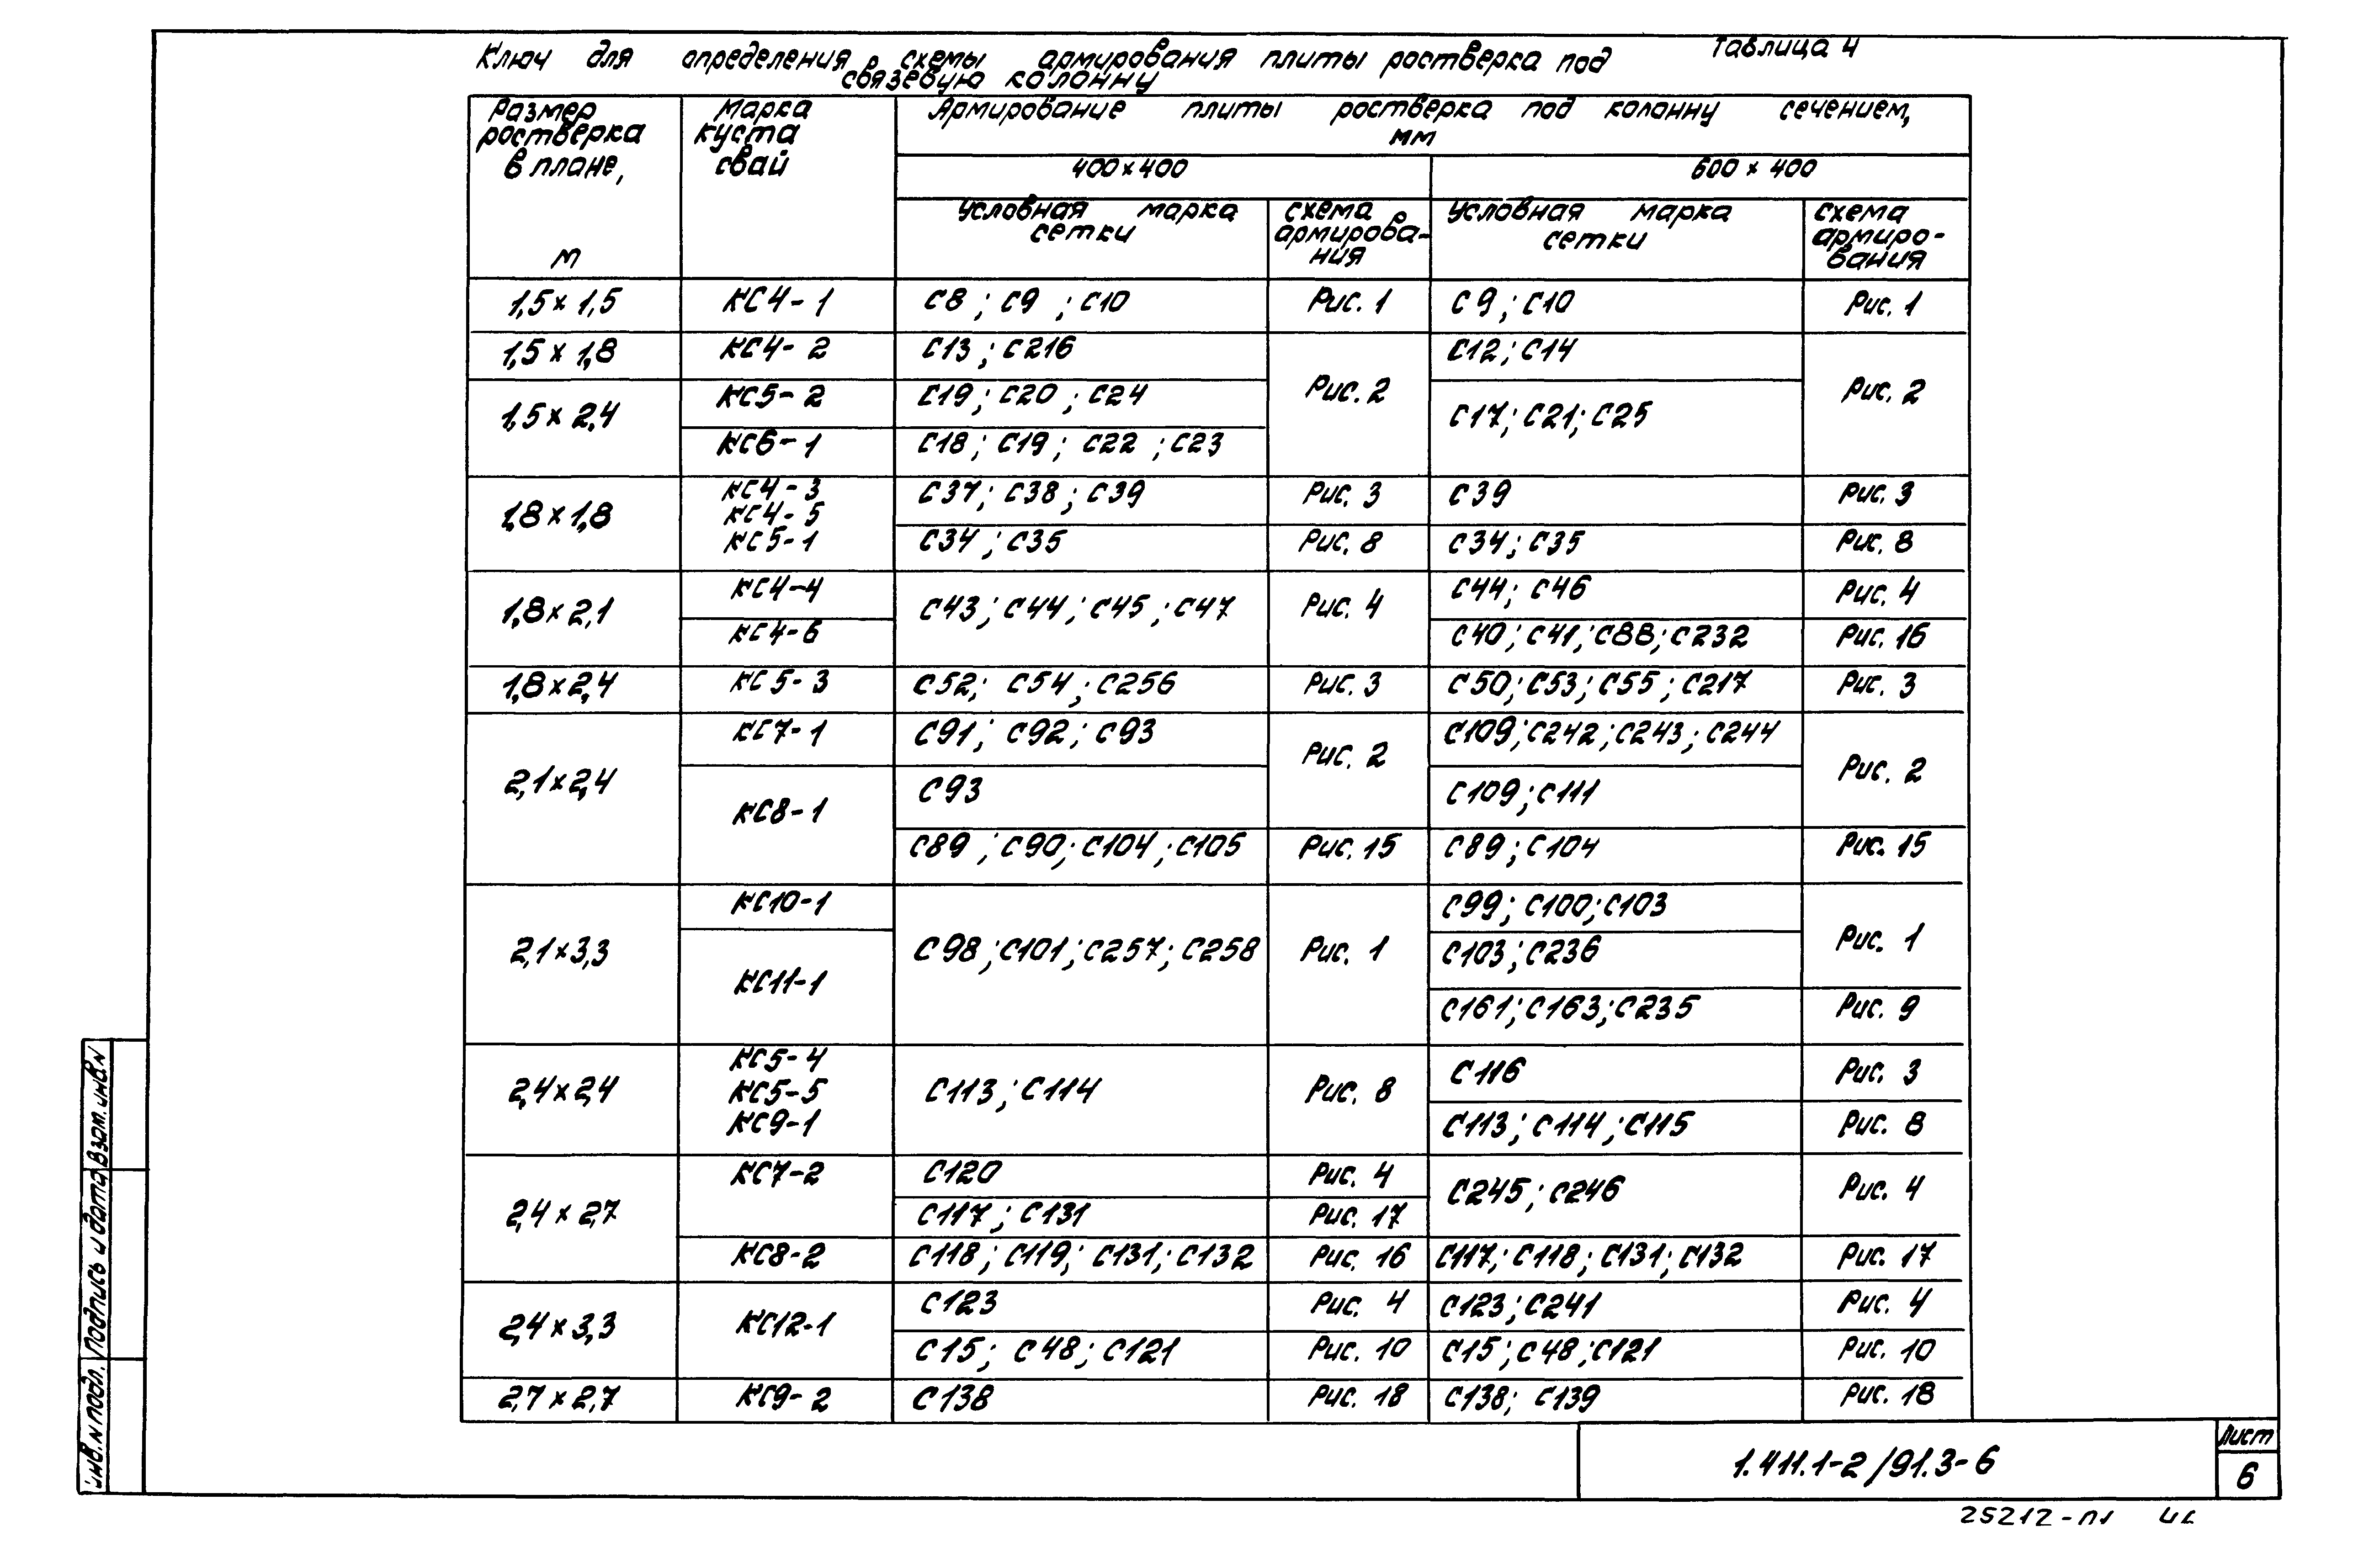 Таблица 4
Ключ для определения схемы армирования плиты ростверка под
связевую колонну
Размер ростверка в плане, м
Марка куста свай
Армирование плиты ростверка под колонну сечением, мм
400×400
600×400
Условная марка сетки
Схема армирова-ния
Условная марка сетки
Схема армиро-вания
1,5×1,5 КС4-1 С8; С9; С10 Рис. 1 С9; С10 Рис. 1
1,5×1,8 КС4-2 С13; С216 Рис. 2 С12; С14 Рис. 2
1,5×2,4 КС5-2 С19; С20; С24 С17; С21; С25
КС6-1 С18; С19; С22; С23
1,8×1,8 КС4-3 С37; С38; С39 Рис. 3 С39 Рис. 3
КС4-5
КС5-1 С34; С35 Рис. 8 С34; С35 Рис. 8
1,8×2,1 КС4-4 С43; С44; С45; С47 Рис. 4 С44; С46 Рис. 4
КС4-6 С40; С41; С88; С232 Рис. 16
1,8×2,4 КС5-3 С52; С54; С256 Рис. 3 С50; С53; С55; С217 Рис. 3
2,1×2,4 КС7-1 С91; С92; С93 Рис. 2 С109; С242; С243; С244 Рис. 2
КС8-1 С93 С109; С111
С89; С90; С104; С105 Рис. 15 С89; С104 Рис. 15
2,1×3,3 КС10-1 С98; С101; С257; С258 Рис. 1 С99; С100; С103 Рис. 1
КС11-1 С103; С236
С161; С163; С235 Рис. 9
2,4×2,4 КС5-4 С113; С114 Рис. 8 С116 Рис. 3
КС5-5
КС9-1 С113; С114; С115 Рис. 8
2,4×2,7 КС7-2 С120 Рис. 4 С245; С246 Рис. 4
С117; С131 Рис. 17
КС8-2 С118; С119; С131; С132 Рис. 16 С117; С118; С131; С132 Рис. 17
2,4×3,3 КС12-1 С123 Рис. 4 С123; С241 Рис. 4
С15; С48; С121 Рис. 10 С15; С48; С121 Рис. 10
2,7×2,7 КС9-2 С138 Рис. 18 С138; С139 Рис. 18
Инв. N подл. Подпись и дата Взам. инв. N
1.411.1-2/91.3-6
Лист
6
25212-